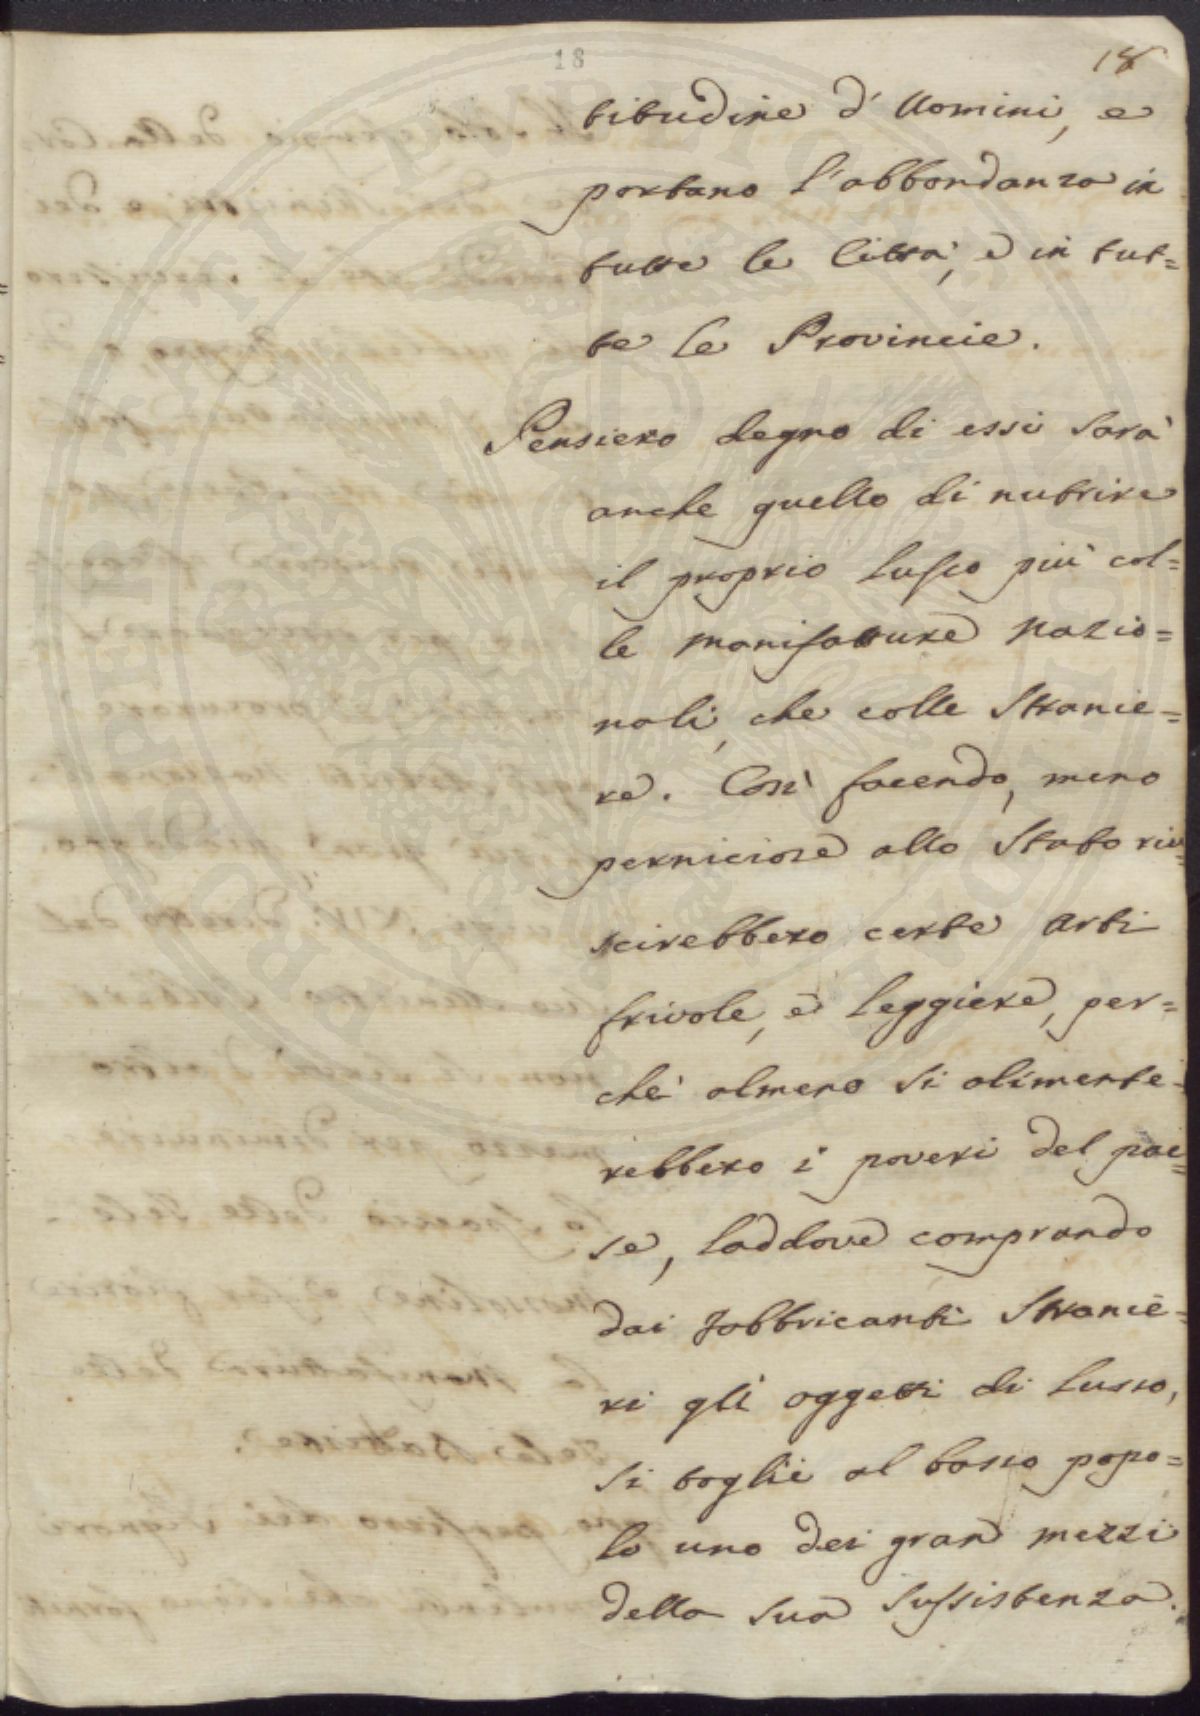 18
18
titudine d'Uomini, e
portano l'abbondanza in
tutte le Città, e in tut=
te le Provincie.
Pensiero degno di essi sarà
anche quello di nutrire
il proprio Lusso più col=
le manifatture Nazio=
nali, che colle Stranie=
re. Così facendo, meno
perniciose allo Stato riu=
scirebbero certe Arti
frivole, e leggiere, per=
chè almeno si alimente=
rebbero i poveri del pae=
se, laddove comprando
dai Fabbricanti Stranie=
ri gli oggetti di Lusso,
si toglie al basso popo=
lo uno dei gran mezzi
della sua sussistenza.